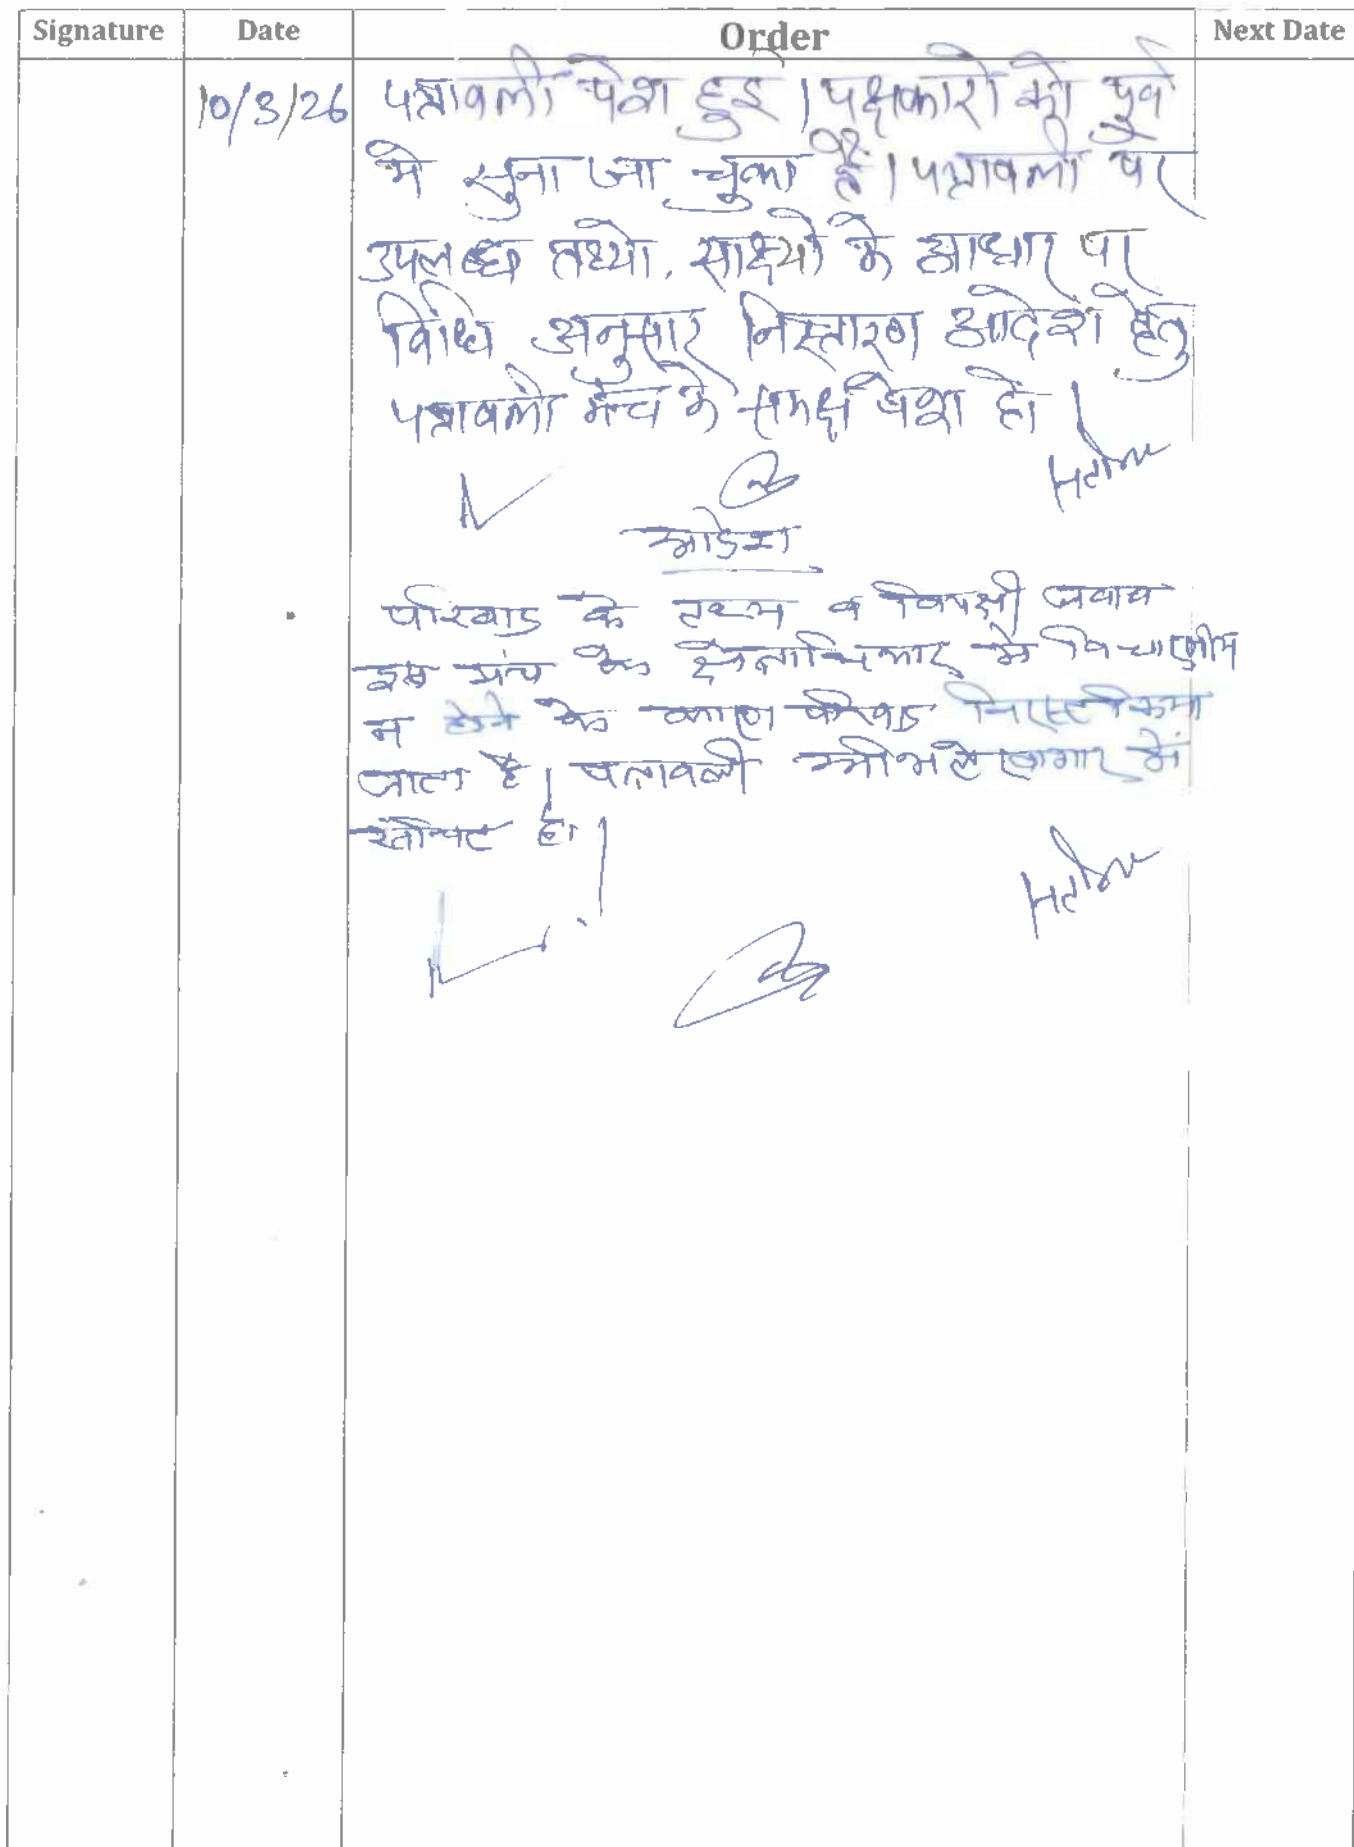 Signature Date Order Next Date
10/3/26 पत्रावली पेश हुई। पक्षकारो को पूर्व
मे सुना जा चुका है। पत्रावली पर
उपलब्ध तथ्यो, साक्ष्यों के आधार पर
विधि अनुसार निस्तारण आदेश हेतु
पत्रावली मंच के समक्ष पेश हो।
आदेश
परिवाद के तथ्य व विपक्षी जवाब
इस मंच के क्षेत्राधिकार मे विचारणीय
न होने के कारण परिवाद निरस्त किया
जाता है। पत्रावली अभिलेखागार में
संचित हो।